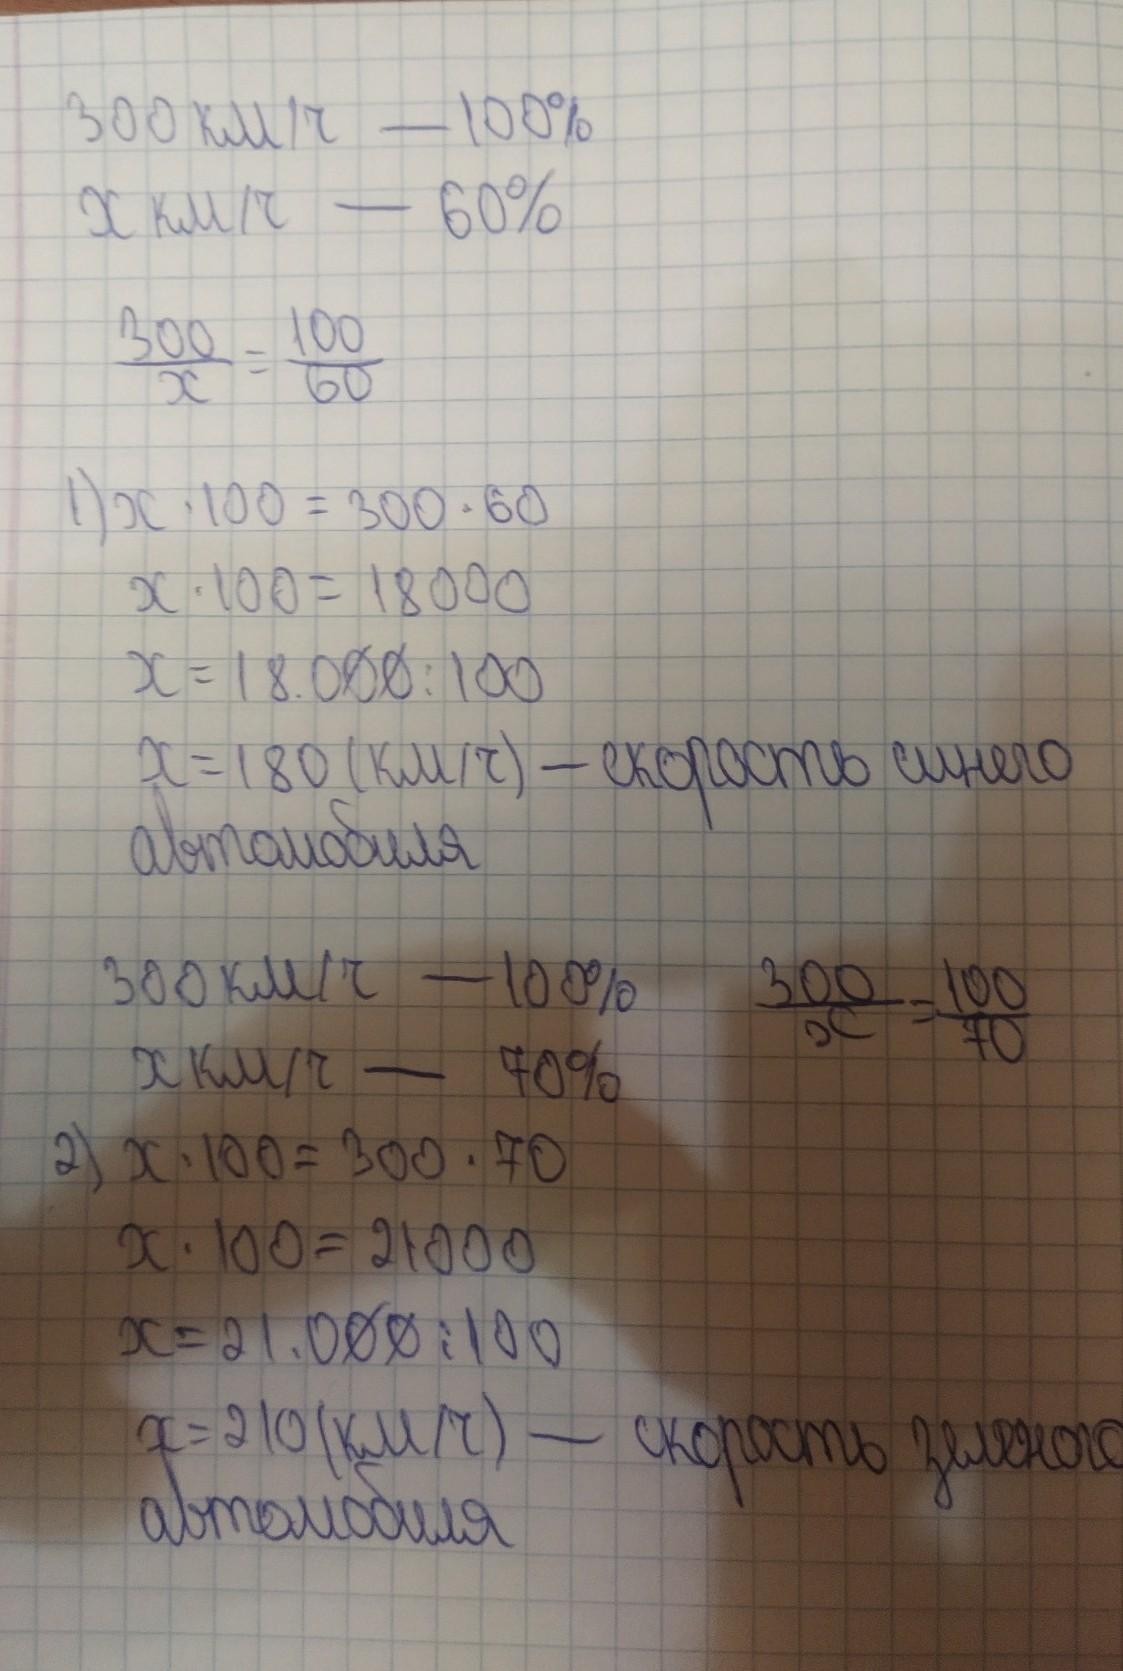 300 км/ч — 100%
х км/ч — 60%
300/х = 100/60
1) х · 100 = 300 · 60
х · 100 = 18000
х = 18.000 : 100
х = 180 (км/ч) — скорость синего
автомобиля
300 км/ч — 100% 300/х = 100/70
х км/ч — 70%
2) х · 100 = 300 · 70
х · 100 = 21000
х = 21.000 : 100
х = 210 (км/ч) — скорость зеленого
автомобиля